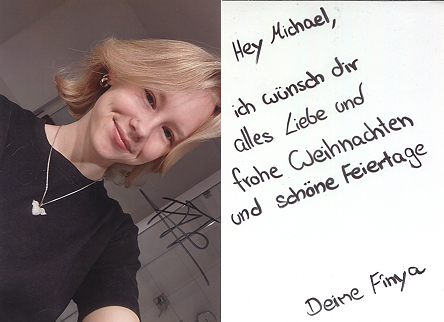 Hey Michael,
ich wünsch dir
alles Liebe und
frohe Weihnachten
und schöne Feiertage
Deine Finya